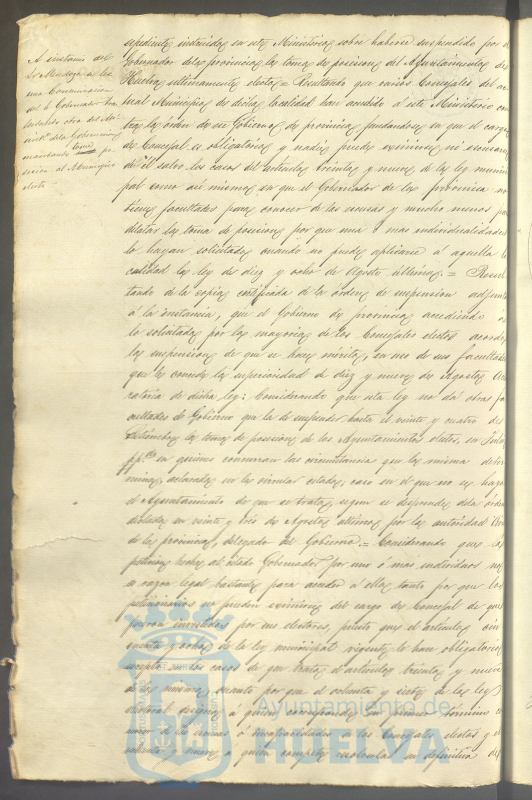 A instancia del
Sr Mendoza se lee
una Comunicacion
del Sr Gobernador tras
ladando otra del Mi
nist.º de la Gobernacion
mandando tome po
sesion el Municipio
electo
espediente instruido en este Ministerio sobre haberse suspendido por el
Gobernador de esa provincia la toma de posesion del Ayuntamiento de
Huelva ultimamente electo = Resultando que varios Concejales del ac
tual Municipio de dicha localidad han acudido á este Ministerio con
tra la órden de ese Gobierno de provincia fundandose en que el cargo
de Concejal es obligatorio y nadie puede eximirse ni escusarse
de él salvo los casos del articulo treinta y nueve de la ley munici
pal como asi mismo en que el Gobernador de la provincia no
tiene facultades para conocer de las escusas y mucho menos para
dilatar la toma de posesion por que una ó mas individualidades
lo hayan solicitado cuando no puede aplicarse á aquella lo
calidad la ley de diez y ocho de Agosto último. = Resul
tando de la copia certificada de la órden de suspension adjunta
á la instancia, que el Gobierno de provincia accediendo á
lo solicitado por la mayoria de los Concejales electos acordó
la suspension de que se hace mérito, en uso de sus facultades
que le concede la superioridad de diez y nueve de Agosto
ratoria de dicha ley: Considerando que esta ley no dá otras fa
cultades al Gobierno que la de suspender hasta el veinte y cuatro de
Setiembre la toma de posesion de los Ayuntamientos electos, en
en quienes concurran las circunstancias que la misma deter
mina, aclaradas en la circular citada, caso en el que no se haya
el Ayuntamiento de que se trata, segun se desprende de la órden
dictada en veinte y tres de Agosto último por la autoridad
de la provincia, delegado del Gobierno. = Considerando que las
peticiones hechas al citado Gobernador por uno ó mas individuos no
es razon legal bastante para acceder á ellas tanto por que los
peticionarios no pueden eximirse del cargo de Concejal de que
fueron investidos por sus electores, puesto que el articulo cin
cuenta y ocho de la ley municipal vigente le hace obligatorio
escepto en los casos de que trata el articulo treinta y nueve
de la misma, cuanto por que el ochenta y siete de la ley
electoral designa á quien corresponde en primer término co
nocer de las escusas ó incapacidades de los Concejales electos y el
ochenta y nueve á quien compete resolverlas en definitiva de
Ayuntamiento de
HUELVA